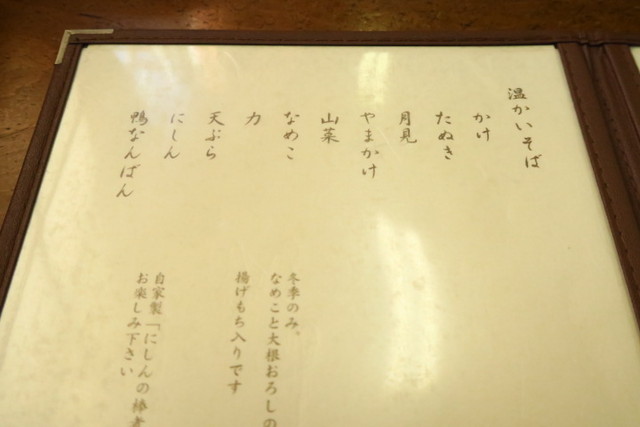 温かいそば
かけ
たぬき
月見
やまかけ
山菜
なめこ
力
天ぷら
にしん
鴨なんばん
冬季のみ、
なめこと大根おろしの
揚げもち入りです
自家製「にしんの棒煮
お楽しみ下さい